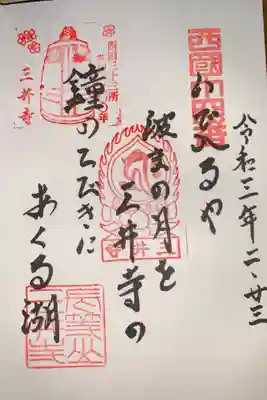 令和三年二、廿三
西國十四番
いでいるや
波まの月を
三井寺の
鐘のひびきに
あくる湖
西国三十三所
三井寺
三井寺